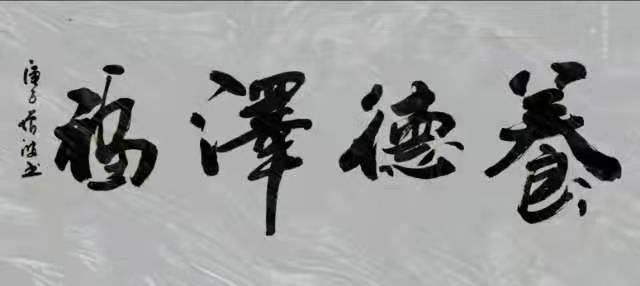 養德澤福
庚子书